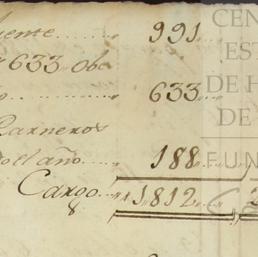 uente 991
y 633 obe
o 633
Carneros
o el año 188
Cargo 1,812
8
CEN
ES
DE H
DE
FUN